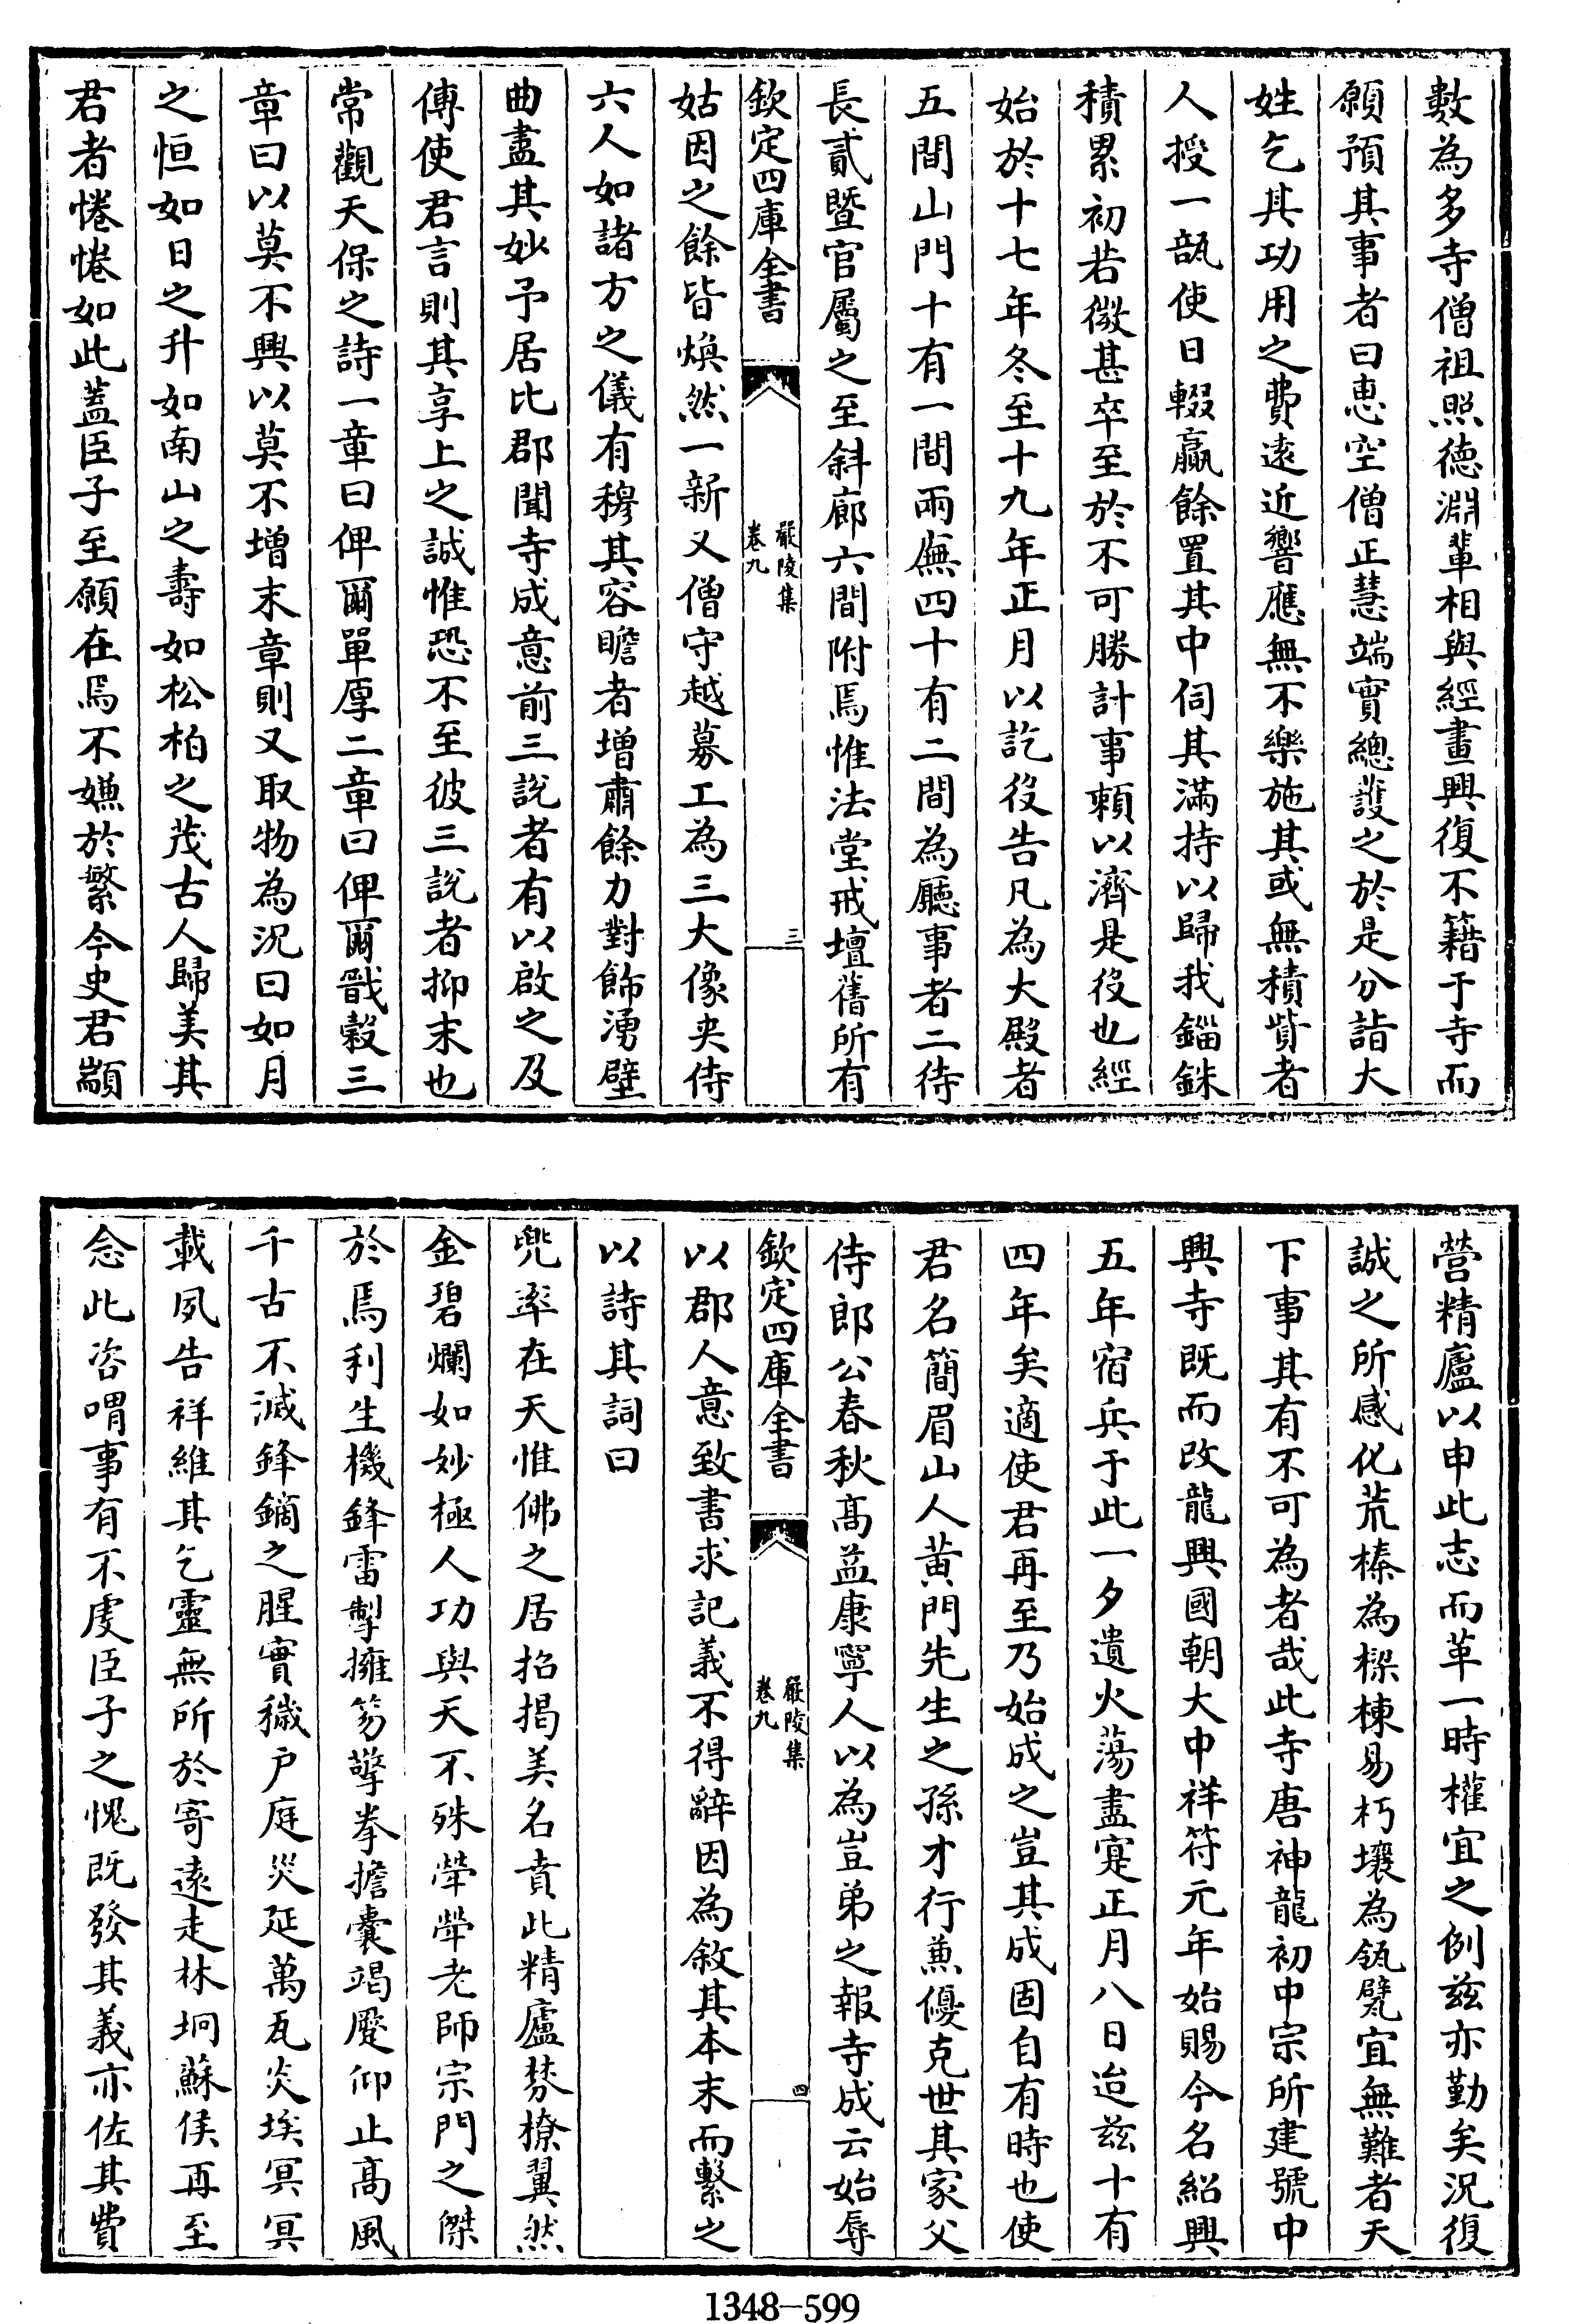 數為多寺僧祖照徳淵輩相與經畫興復不籍于寺而
願預其事者曰惠空僧正慧端實總護之於是分詣大
姓乞其功用之費遠近響應無不樂施其或無積貲者
人授一瓿使日輟贏餘置其中伺其滿持以歸我錙銖
積累初若微甚卒至於不可勝計事賴以濟是役也經
始於十七年冬至十九年正月以訖役告凡為大殿者
五間山門十有一間兩廡四十有二間為廳事者二待
長貳暨官屬之至斜廊六間附焉惟法堂戒壇舊所有
欽定四庫全書
嚴陵集
卷九
三
姑因之餘皆煥然一新又僧守越募工為三大像夾侍
六人如諸方之儀有穆其容瞻者增肅餘力對飾湧壁
曲盡其妙予居比郡聞寺成意前三說者有以啟之及
傅使君言則其享上之誠惟恐不至彼三說者抑末也
常觀天保之詩一章曰俾爾單厚二章曰俾爾戩穀三
章曰以莫不興以莫不增末章則又取物為況曰如月
之恒如日之升如南山之壽如松柏之茂古人歸美其
君者惓惓如此蓋臣子至願在焉不嫌於繁今史君顓
營精廬以申此志而革一時權宜之例兹亦勤矣況復
誠之所感化荒榛為樑棟易朽壤為瓴甓宜無難者天
下事其有不可為者哉此寺唐神龍初中宗所建號中
興寺既而改龍興國朝大中祥符元年始賜今名紹興
五年宿兵于此一夕遺火蕩盡寔正月八日迨兹十有
四年矣適使君再至乃始成之豈其成固自有時也使
君名簡眉山人黄門先生之孫才行兼優克世其家父
侍郎公春秋髙益康寧人以為豈弟之報寺成云始辱
欽定四庫全書
嚴陵集
卷九
四
以郡人意致書求記義不得辭因為敘其本末而繫之
以詩其詞曰
兜率在天惟佛之居掐揭美名賁此精廬棼橑翼然
金碧爛如妙極人功與天不殊犖犖老師宗門之傑
於焉利生機鋒雷掣擁笏擎拳擔囊竭蹷仰止髙風
千古不滅鋒鏑之腥實穢户庭災延萬瓦炎埃冥冥
載夙告祥維其乞靈無所於寄遠走林坰蘇侯再至
念此咨喟事有不虔臣子之愧既發其義亦佐其費
1348—599